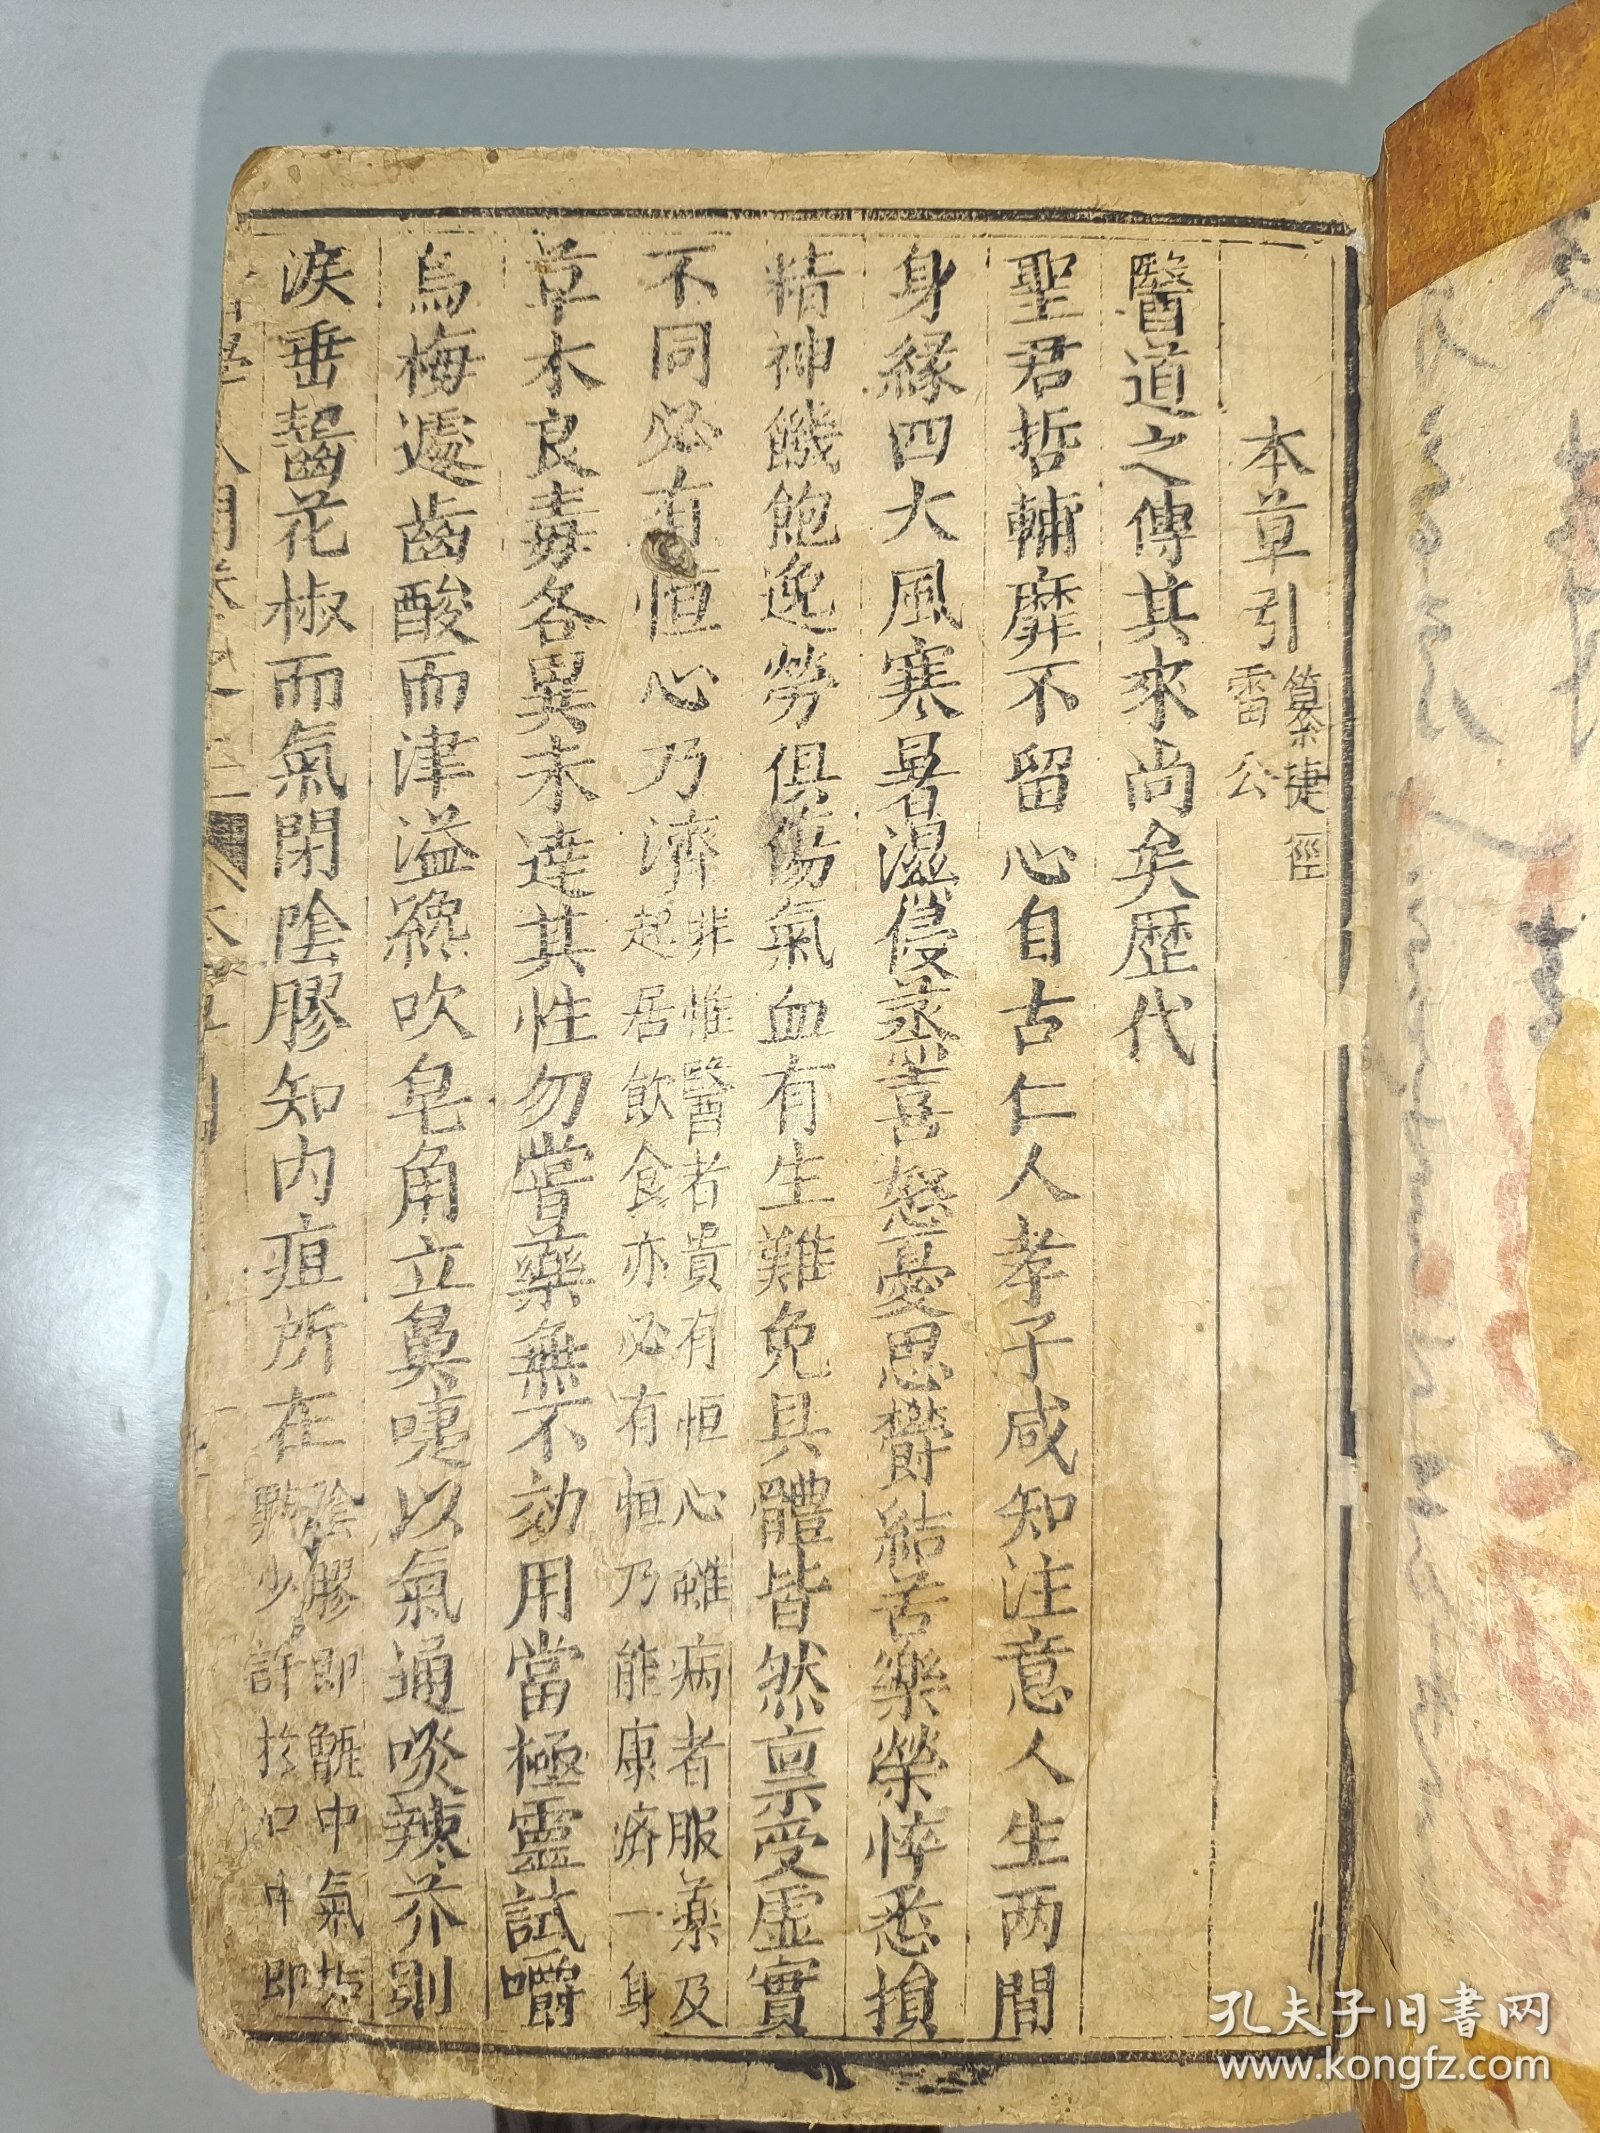 本草引 纂捷徑 雷公
醫道之傳其來尚矣歷代
聖君哲輔靡不留心自古仁人孝子咸知注意人生两間
身緣四大風寒暑濕侵蒸喜怒憂思欝結苦樂榮悴悉損
精神饑飽逸勞俱傷氣血有生難免具體皆然禀受虛實
不同必有恒心乃濟 非惟醫者貴有恒心雖病者服藥及
起居飲食亦必有恒乃能康濟一身
草木良毒各異未達其性勿嘗藥無不効用當極靈試嚼
烏梅遽齒酸而津溢纔吹皂角立鼻嚏以氣通啖辣芥則
淚垂齧花椒而氣閉陰膠知内疽所在 陰膠即甑中氣垢
點少許於口中即
孔夫子旧书网
www.kongfz.com